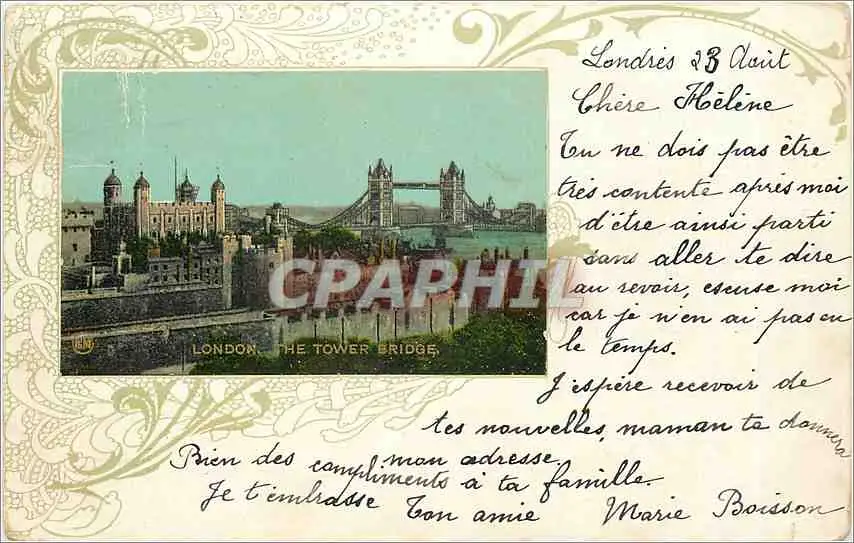 Londrès 23 Août
Chère Hélène
Tu ne dois pas être
très contente après moi
d'être ainsi parti
sans aller te dire
au revoir, escuse moi
car je n'en ai pas eu
le temps.
J'espère recevoir de
tes nouvelles, maman te donnera
mon adresse.
Bien des compliments à ta famille.
Je t'embrasse
Ton amie Marie Boisson
LONDON. THE TOWER BRIDGE.
CPAPHIL